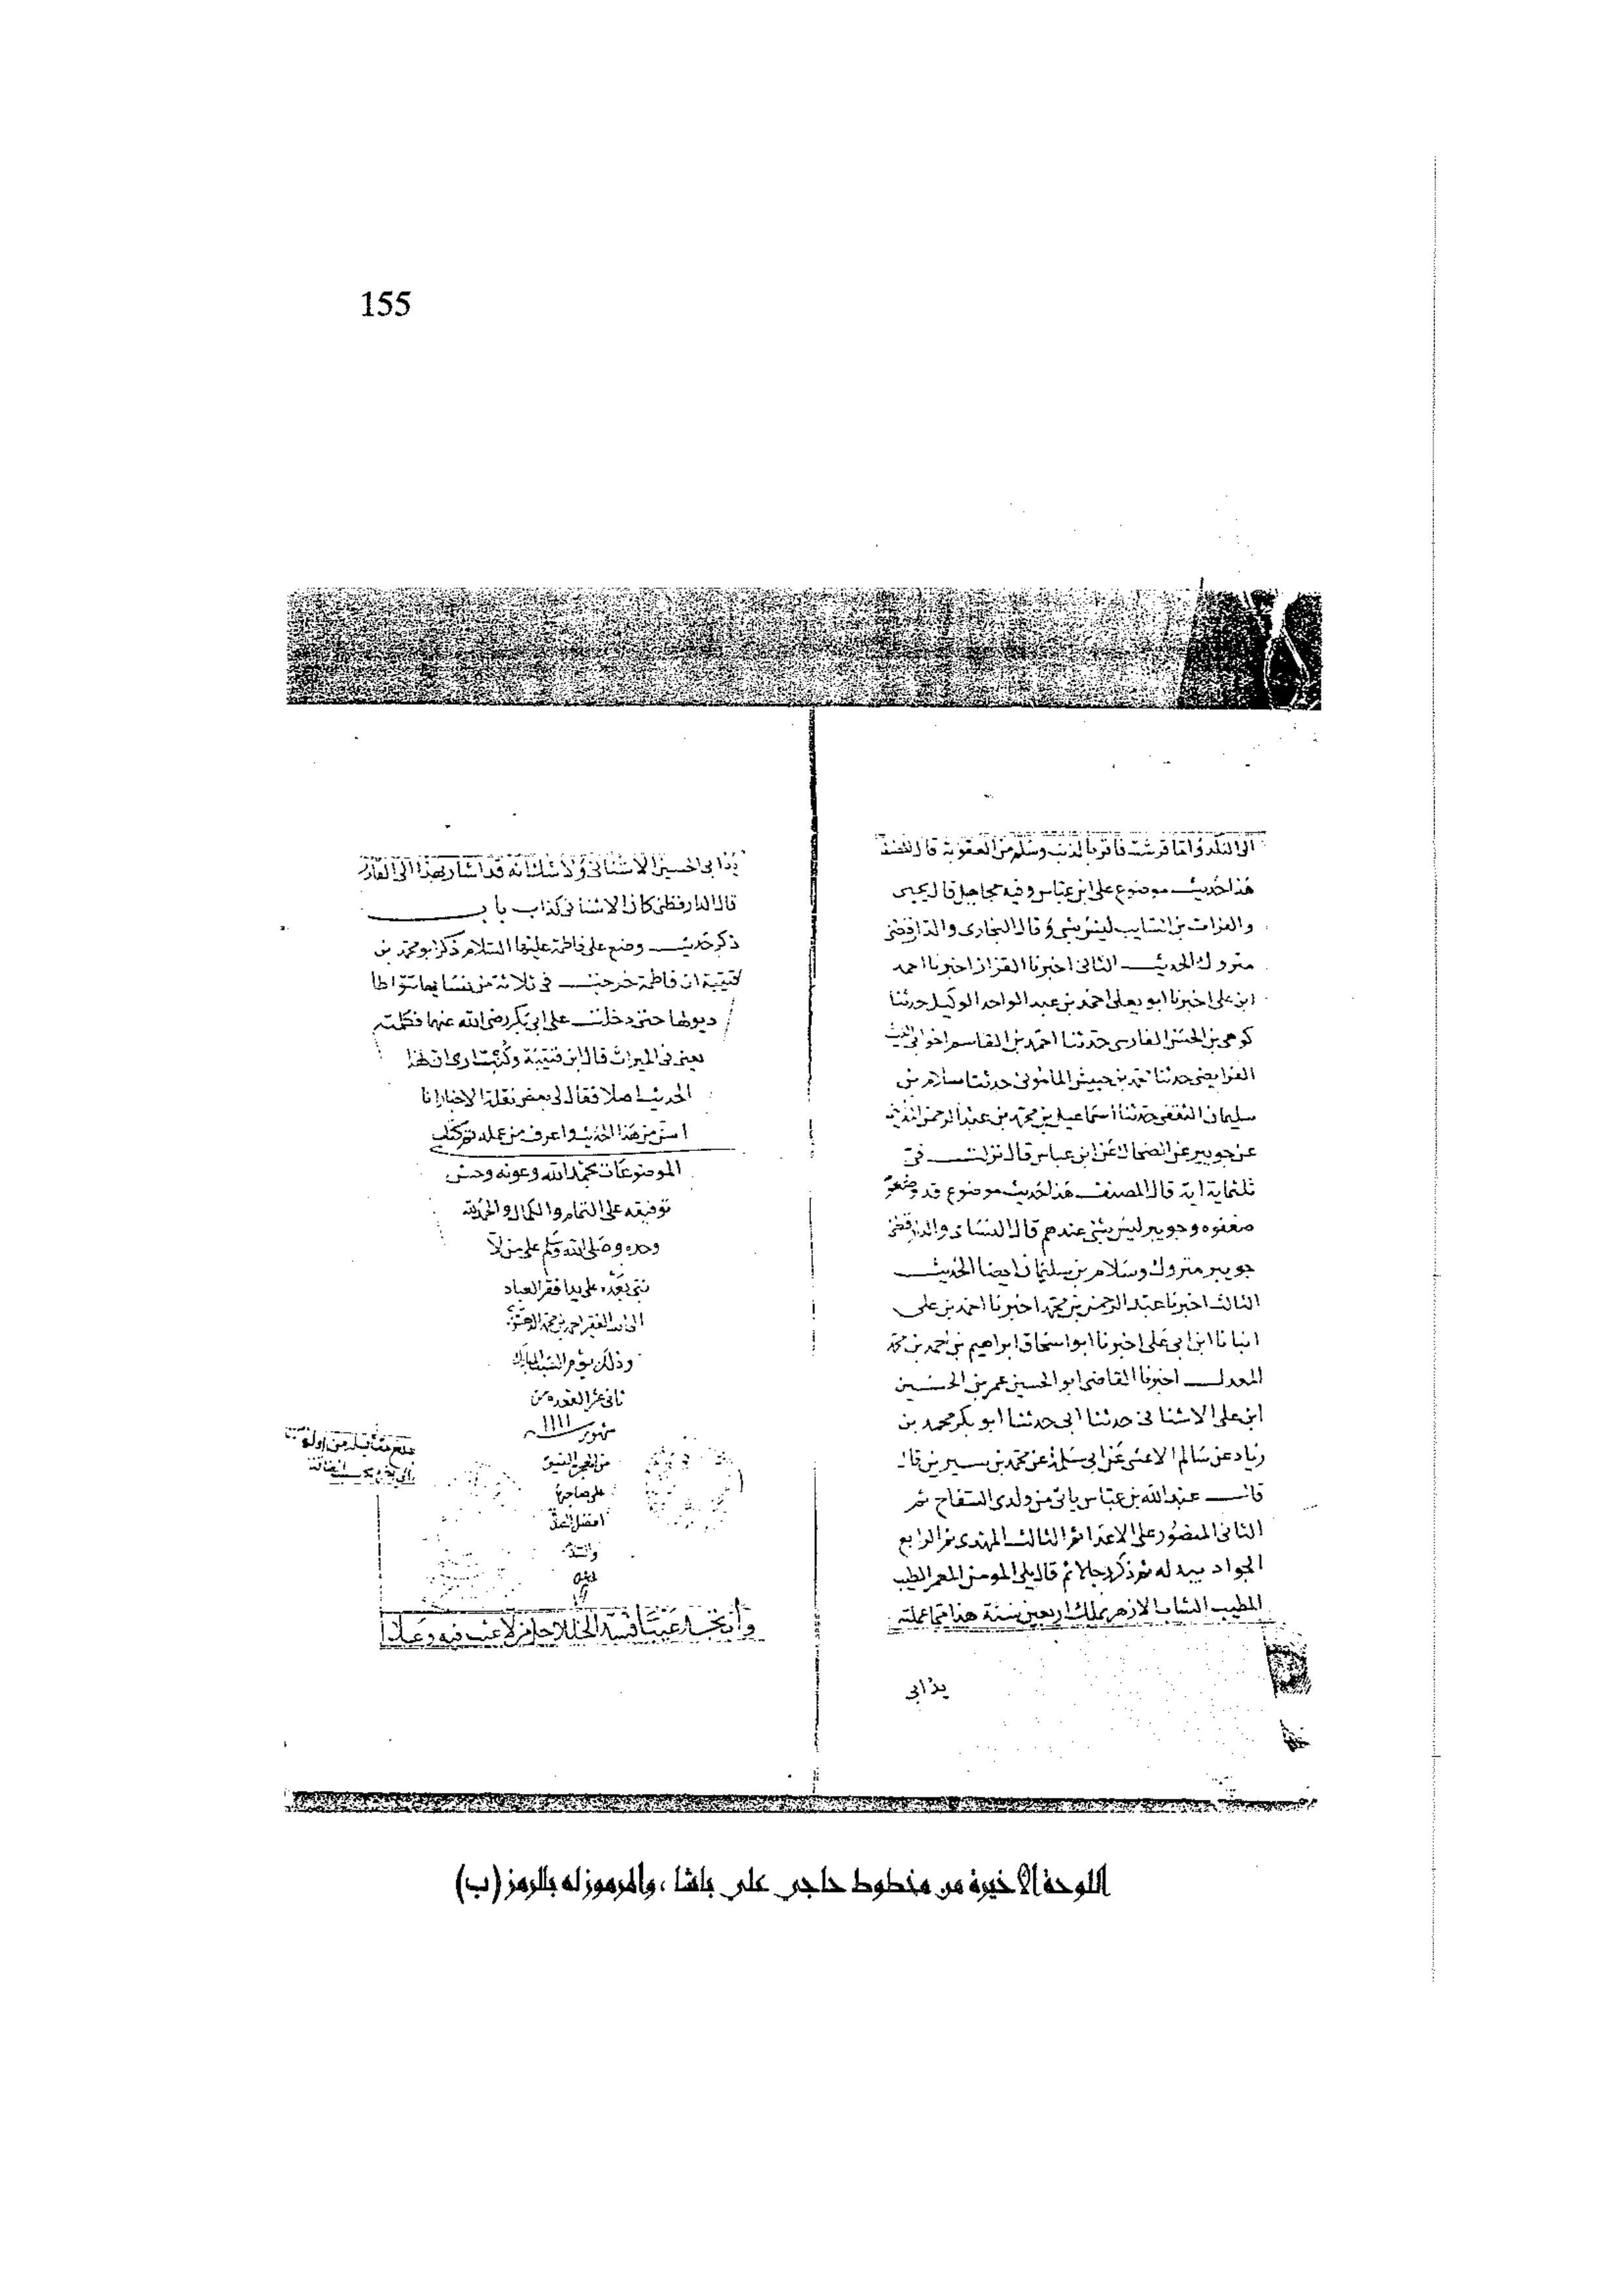 155
الى البلد واما قرشت فاقر بالذنب وسلم من العقوبة قال المصنف
هذا حديث موضوع على ابن عباس وفيه مجاهيل قال يحيى
والفرات بن السايب ليس بشي وقال البخارى والدارقطنى
متروك الحديث الثانى اخبرنا القزاز اخبرنا احمد
ابن على اخبرنا ابو يعلى احمد بن عبد الواحد الوكيل حدثنا
كوهى بن الحسن الفارسى حدثنا احمد بن القاسم اخو ابى الليث
الفرايضى حدثنا محمد بن حبيش المامونى حدثنا سلام بن
سليمان الثقفى حدثنا اسماعيل بن محمد بن عبد الرحمن
عن جويبر عن الضحاك عن ابن عباس قال نزلت فى
ثلثماية اية قال المصنف هذا حديث موضوع قد
ضعفوه وجويبر ليس بشى عندهم قال النساى والدارقطنى
جويبر متروك وسلام بن سليمان ايضا الحديث
الثالث اخبرنا عبد الرحمن بن محمد اخبرنا احمد بن على
انبانا ابن ابى على اخبرنا ابو اسحاق ابراهيم بن احمد بن محمد
المعدل اخبرنا القاضى ابو الحسين عمر بن الحسين
ابن على الاشنانى حدثنا ابى حدثنا ابو بكر محمد بن
زياد عن سالم الاعشى عن ابى سلمة عن محمد بن سيرين قال
قال عبد الله بن عباس ياتى من ولدى السفاح ثم
الثانى المنصور على الاعدا ثم الثالث المهدى ثم الرابع
الجواد بيده له ثم ذكر رجلا ثم قال يلى المومن المعمر الطيب
المطيب الشاب الازهر يملك اربعين سنة هذا مما عملته
يدا ابى
يدا ابى الحسين الاشنانى ولا شك انه قد اشار بهذا الى القادر
قال الدارقطنى كان الاشنانى كذاب باب
ذكر حديث وضع على فاطمة عليها السلام ذكر ابو محمد بن
قتيبة ان فاطمة خرجت فى ثلاثة من نسايها تتواطا
ذيولها حتى دخلت على ابى بكر رضى الله عنهما فكلمته
يعنى فى الميراث قال ابن قتيبة وكنت ارى ان لهذا
الحديث اصلا فقال لى بعض نقلة الاخبار انا
اسن من هذا الحديث واعرف من عمله تم كتاب
الموضوعات بحمد الله وعونه وحسن
توفيقه على التمام والكمال والحمد لله
وحده وصلى الله وسلم على من لا
نبى بعده على يد افقر العباد
الى الله الفقير احمد بن محمد
وذلك يوم السبت المبارك
ثانى عشر القعده من
شهور سنة ١١١١
من الهجرة النبوية
على صاحبها
افضل الصلاة
والسلام
وان تجد عيبا فسد الخللا جل من لا عيب فيه وعلا
اللوحة الأخيرة من مخطوط حاجي علي باشا، والمرموز له بالرمز (ب)